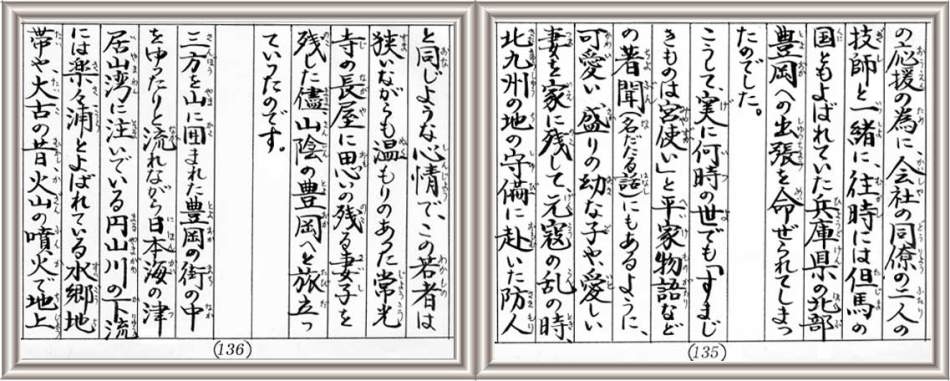 の応援の為に、会社の同僚の二人の
技師と一緒に、往時には但馬の
国ともよばれていた兵庫県の北部
豊岡への出張を命ぜられてしまっ
たのでした。
こうして、実に何時の世でも「すまじ
きものは宮使い」と平家物語など
の著聞(名だたる話)にもあるように、
可愛い盛りの幼な子や、愛しい
妻を家に残して、元寇の乱の時、
北九州の地の守備に赴いた防人
(135)
と同じような心情で、この若者は
狭いながらも温もりのあった常光
寺の長屋に思いの残る妻子を
残した儘、山陰の豊岡へと旅立っ
ていったのです。
三方を山に囲まれた豊岡の街の中
をゆったりと流れながら日本海の津
居山湾に注いでいる円山川の下流
には楽々浦とよばれている水郷地
帯や太古の昔火山の噴火で地上
(136)